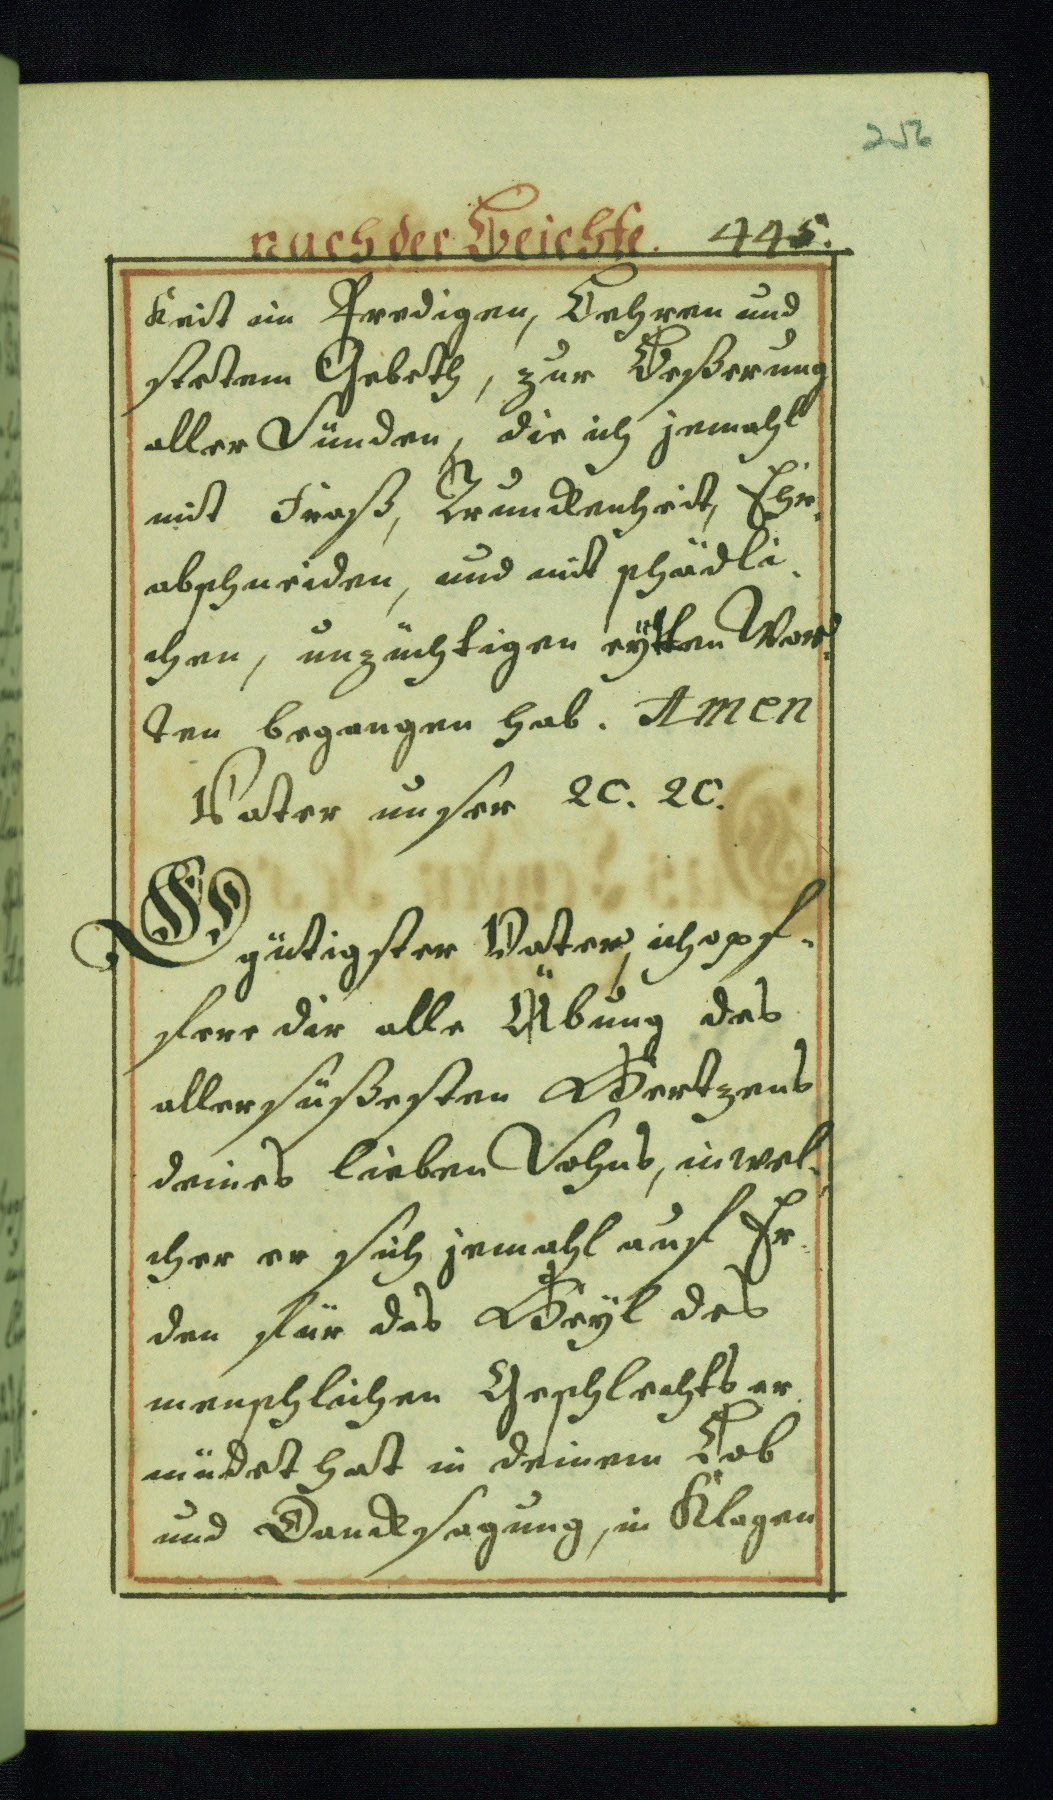 256
nach der Beichte. 445.
keit im Predigen, Lehren und
stetem Gebeth, zur Beßerung
aller Sünden, die ich jemahl
mit Fraß, Trunckenheit, Ehr-
abschneiden, und mit schädli-
chen, unzüchtigen eytlen Wor-
ten begangen hab. Amen
Vater unser 2c. 2c.
gütigster Vater, ich opf-
fere dir alle Übung des
allersüßesten Hertzens
deines lieben Sohns, in wel-
cher er sich jemahl auf Er-
den für das Heyl des
menschlichen Geschlechts er-
müdet hat in deinem Lob
und Dancksagung, in Klagen